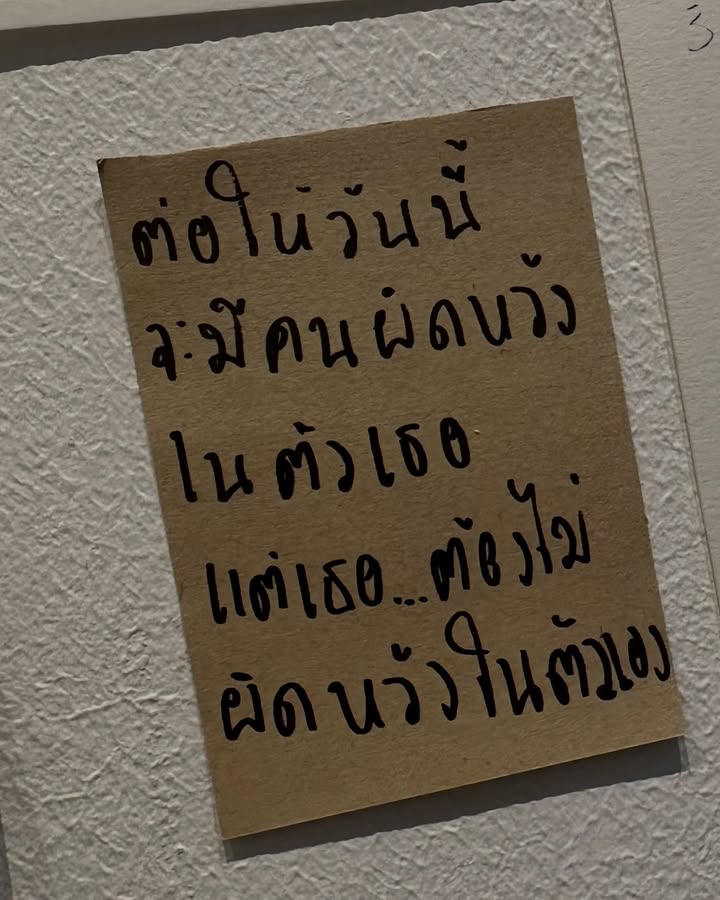 ต่อให้วันนี้
จะมีคนผิดหวัง
ในตัวเธอ
แต่เธอ...ต้องไม่
ผิดหวังในตัวเอง